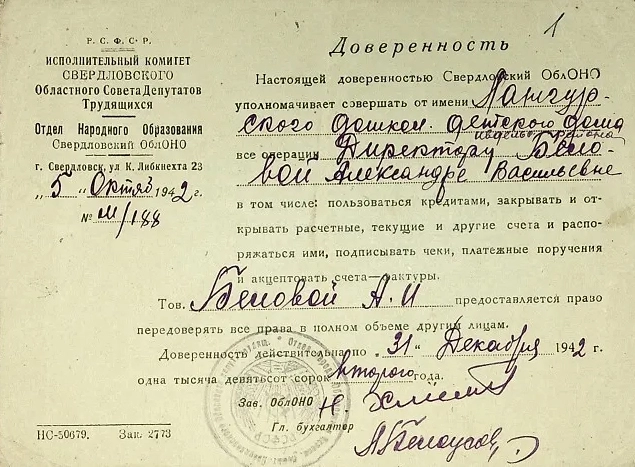 1
Р. С. Ф. С. Р.
ИСПОЛНИТЕЛЬНЫЙ КОМИТЕТ
СВЕРДЛОВСКОГО
Областного Совета Депутатов
Трудящихся
Отдел Народного Образования
Свердловский ОблОНО
г. Свердловск, ул К. Либкнехта 23
„5" Октяб 1942 г.
№ М/188
Доверенность
Настоящей доверенностью Свердловский ОблОНО
уполномачивает совершать от имени Лангур-
ского дошкол. детского дома
Ивдельс района
все операции Директору Бело-
вой Александре Васильевне
в том числе: пользоваться кредитами, закрывать и от-
крывать расчетные, текущие и другие счета и распо-
ряжаться ими, подписывать чеки, платежные поручения
и акцептовать счета—фактуры.
Тов. Беловой А. И предоставляется право
передоверять все права в полном объеме другим лицам.
Доверенность действительна по „31" Декабря 1942 г.
одна тысяча девятьсот сорок второго года.
Зав. ОблОНО Н.
Гл. бухгалтер Белоусов
НС-50679. Зак. 2773